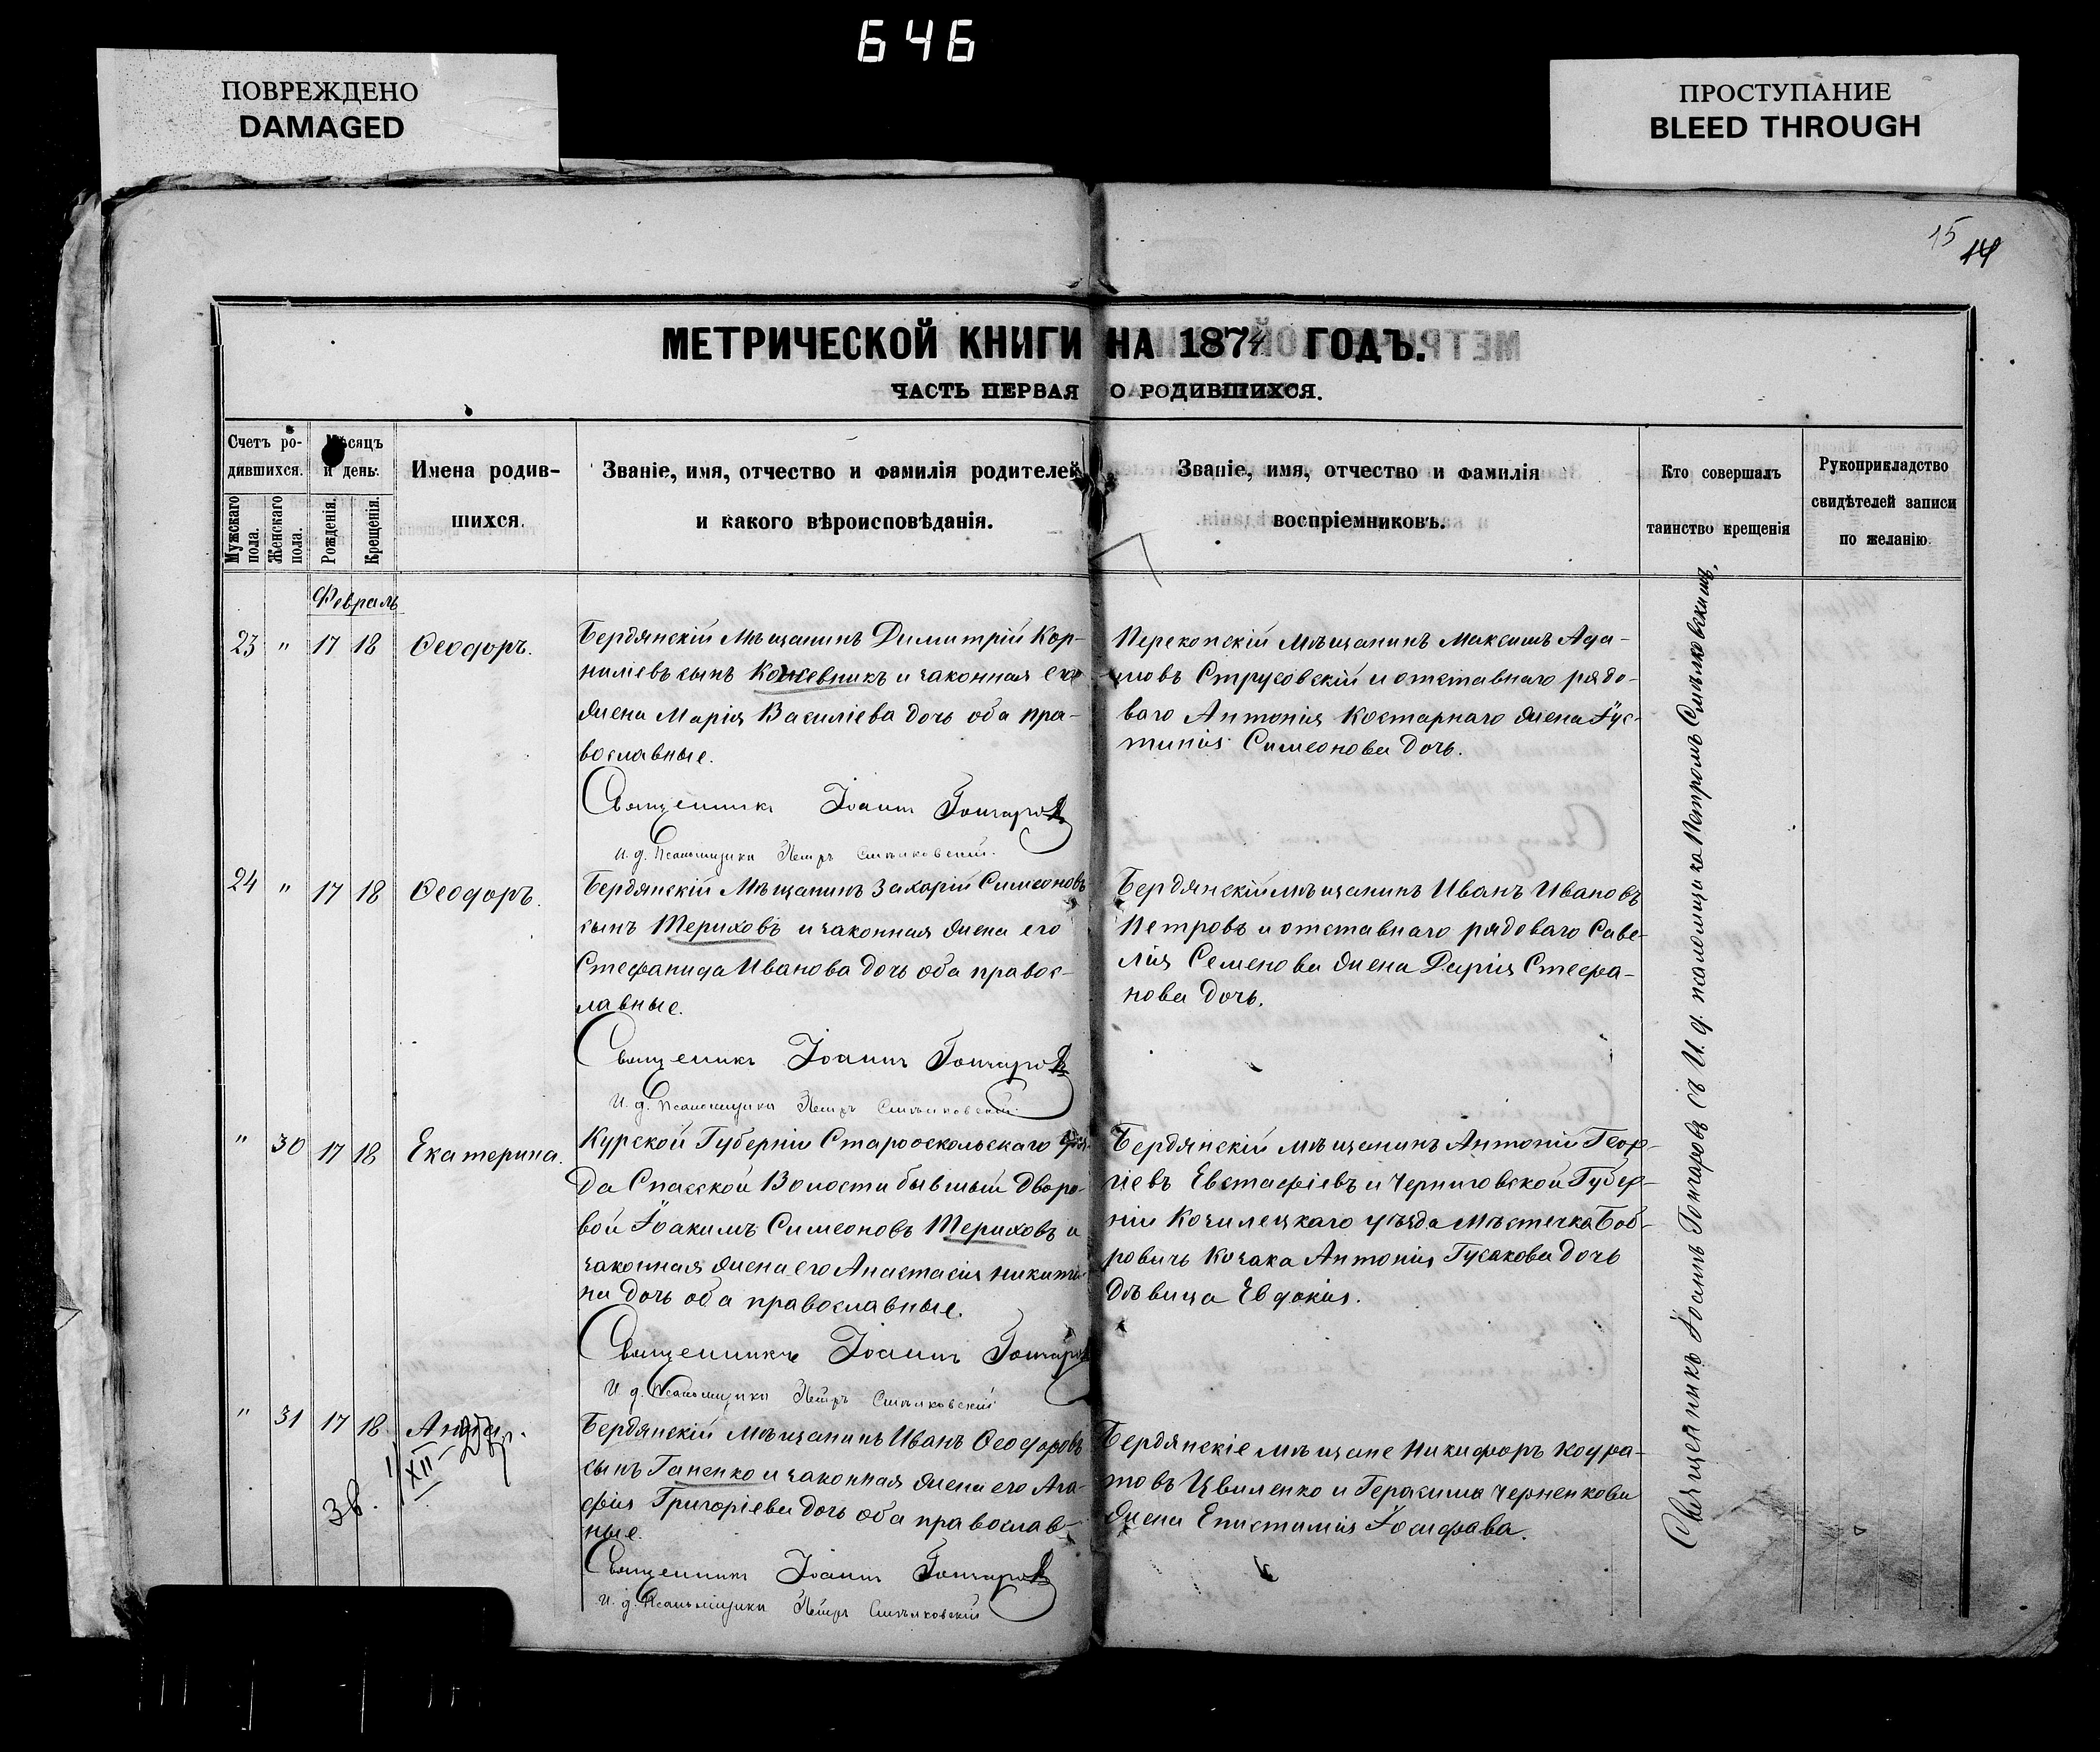 646
ПОВРЕЖДЕНО
DAMAGED
ПРОСТУПАНИЕ
BLEED THROUGH
15
МЕТРИЧЕСКОЙ КНИГИ НА 1874 ГОДЪ.
ЧАСТЬ ПЕРВАЯ О РОДИВШИХСЯ.
Счетъ ро-
дившихся.
Мужскаго пола.
Женскаго пола.
Мѣсяцъ
и день.
Рожденія.
Крещенія.
Имена родив-
шихся.
Званіе, имя, отчество и фамилія родителей
и какого вѣроисповѣданія.
Званіе, имя, отчество и фамилія
воспріемниковъ.
Кто совершалъ
таинство крещенія
Рукоприкладство
свидѣтелей записи
по желанію.
Февраль
23 " 17 18 Ѳеодоръ.
Бердянскій Мѣщанинъ Димитрій Кор-
ниліевъ сынъ Кожевникъ и законная его
жена Марія Василіева дочь оба пра-
вославные.
Священникъ Іоаннъ Гончаровъ
И. д. Псаломщика Петръ Смѣлковскій.
Перекопскій Мѣщанинъ Максимъ Ада-
мовъ Струсовскій и отставнаго рядо-
ваго Антонія Костарнаго жена Іус-
тинія Симеонова дочь.
24 " 17 18 Ѳеодоръ.
Бердянскій Мѣщанинъ Захарій Симеоновъ
сынъ Териховъ и законная жена его
Стефанида Иванова дочь оба правос-
лавные.
Священникъ Іоаннъ Гончаровъ
И. д. Псаломщика Петръ Смѣлковскій.
Бердянскій мѣщанинъ Иванъ Ивановъ
Петровъ и отставнаго рядоваго Саве-
лія Семенова жена Дарія Стефа-
нова дочь.
" 30 17 18 Екатерина.
Курской Губерніи Старооскольскаго уѣз-
да Спасской Волости бывшый дворо-
вой Іоакимъ Симеоновъ Териховъ и
законная жена его Анастасія Никити-
на дочь оба православные.
Священникъ Іоаннъ Гончаровъ
И. д. Псаломщика Петръ Смѣлковскій
Бердянскій мѣщанинъ Антоній Геор-
гіевъ Евстафіевъ и Черниговской Губер-
ніи Козилецкаго уѣзда Мѣстечка Боб-
ровичь Козака Антонія Гусакова дочь
дѣвица Евдокія.
" 31 17 18 Анна.
XII
Зв.
Бердянскій Мѣщанинъ Иванъ Ѳеодоровъ
сынъ Ганенко и законная жена его Ага-
фія Григоріева дочь оба православ-
ные.
Священникъ Іоаннъ Гончаровъ
И. д. Псаломщика Петръ Смѣлковскій
Бердянскіе мѣщане Никифоръ Кодра-
товъ Цвиленко и Герасима Черненкова
жена Епистимія Іосифова.
Священникъ Іоаннъ Гончаровъ съ И. д. псаломщика Петромъ Смѣлковскимъ.